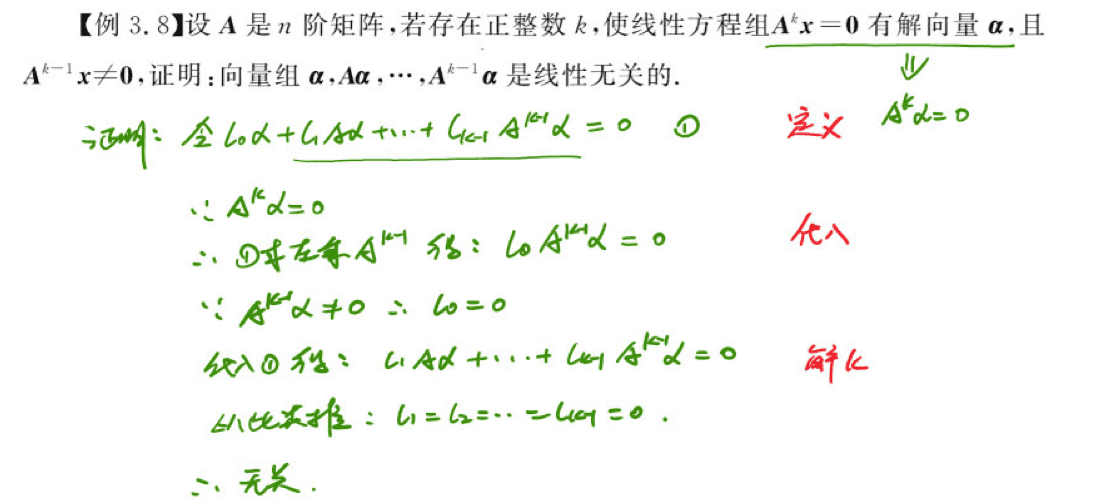 【例 3.8】设 A 是 n 阶矩阵,若存在正整数 k,使线性方程组A^k x=0 有解向量 α,且
A^{k-1}x≠0,证明:向量组 α,Aα,⋯,A^{k-1}α 是线性无关的.
A^kα=0
证明: 令 l₀α+l₁Aα+⋯+l_{k-1}A^{k-1}α=0 ① 定义
∵ A^kα=0
∴ ①式左乘A^{k-1} 得: l₀A^{k-1}α=0 代入
∵ A^{k-1}α≠0 ∴ l₀=0
代入①得: l₁Aα+⋯+l_{k-1}A^{k-1}α=0 解k
以此类推: l₁=l₂=⋯=l_{k-1}=0.
∴ 无关.